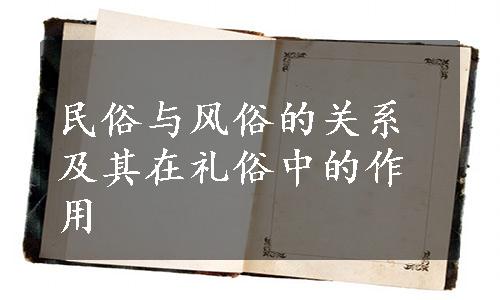 民俗与风俗的关系
及其在礼俗中的作
用